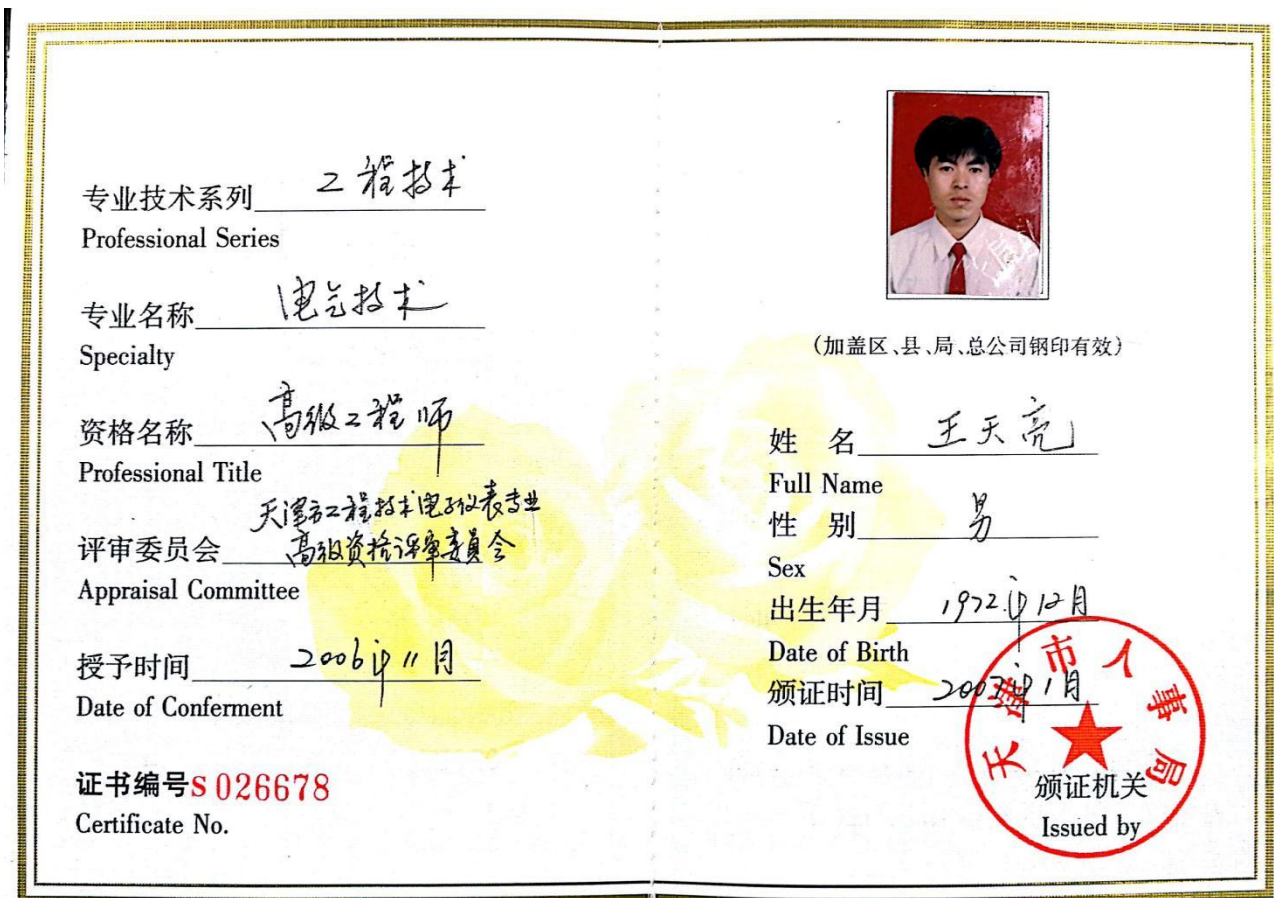 专业技术系列 工程技术
Professional Series
专业名称 电气技术
Specialty
资格名称 高级工程师
Professional Title
天津市工程技术电子仪表专业
评审委员会 高级资格评审委员会
Appraisal Committee
授予时间 2006年11月
Date of Conferment
证书编号S 026678
Certificate No.
(加盖区、县、局、总公司钢印有效)
姓 名 王天亮
Full Name
性 别 男
Sex
出生年月 1972年12月
Date of Birth
颁证时间 2007年1月
Date of Issue
天津市人事局
颁证机关
Issued by